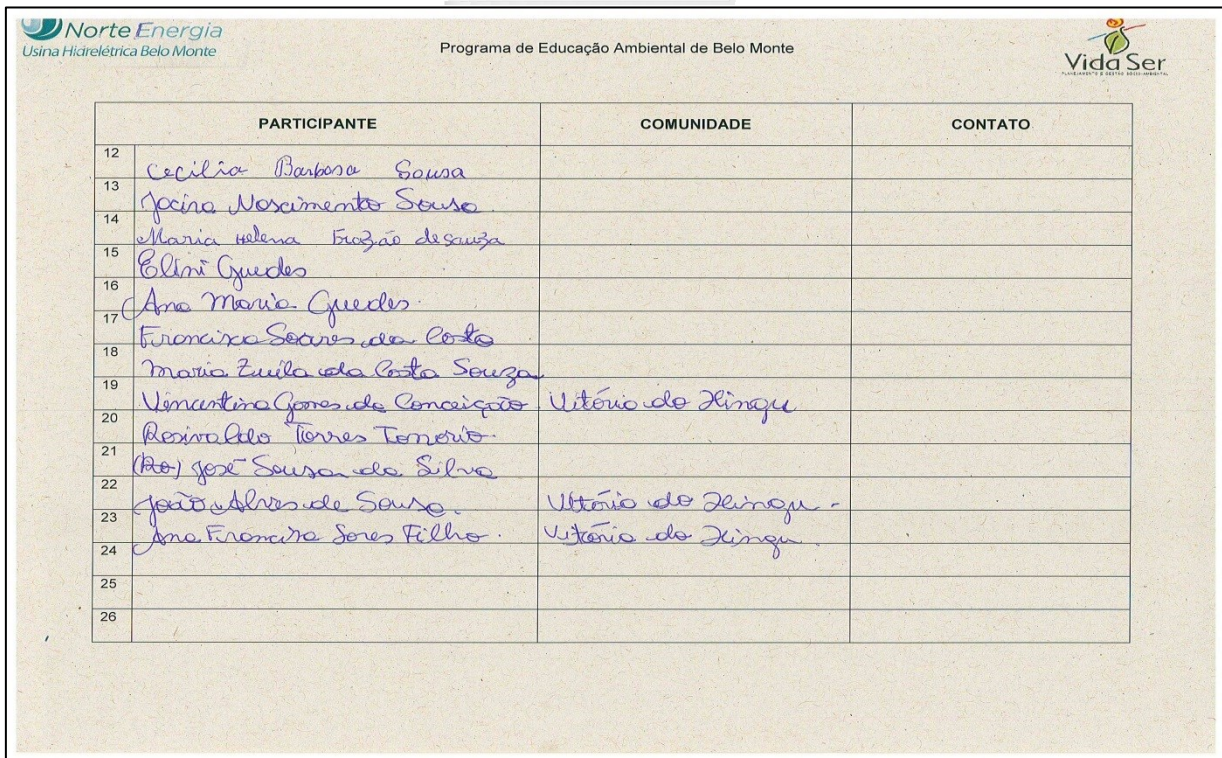 Norte Energia
Usina Hidrelétrica Belo Monte
Programa de Educação Ambiental de Belo Monte
Vida Ser
PLANEJAMENTO E GESTÃO SÓCIO-AMBIENTAL
PARTICIPANTE COMUNIDADE CONTATO
12 Cecilia Barbosa Sousa
13 Jocira Noscimento Souso
14 Maria Helena Frazão de sauza
15 Elini Guedes
16 Ana Maria Guedes.
17 Francisca Soares da Costa
18 Maria Zuila da Costa Souza
19 Vincentina Gomes da Conceição Vitória do Xingu
20 Rosivaldo Torres Tenorio.
21 José Sousa da Silva
22 João Alves de Sousa. Vitória do Xingu -
23 Ana Francisa Sores Filho. Vitória do Xingu.
24
25
26